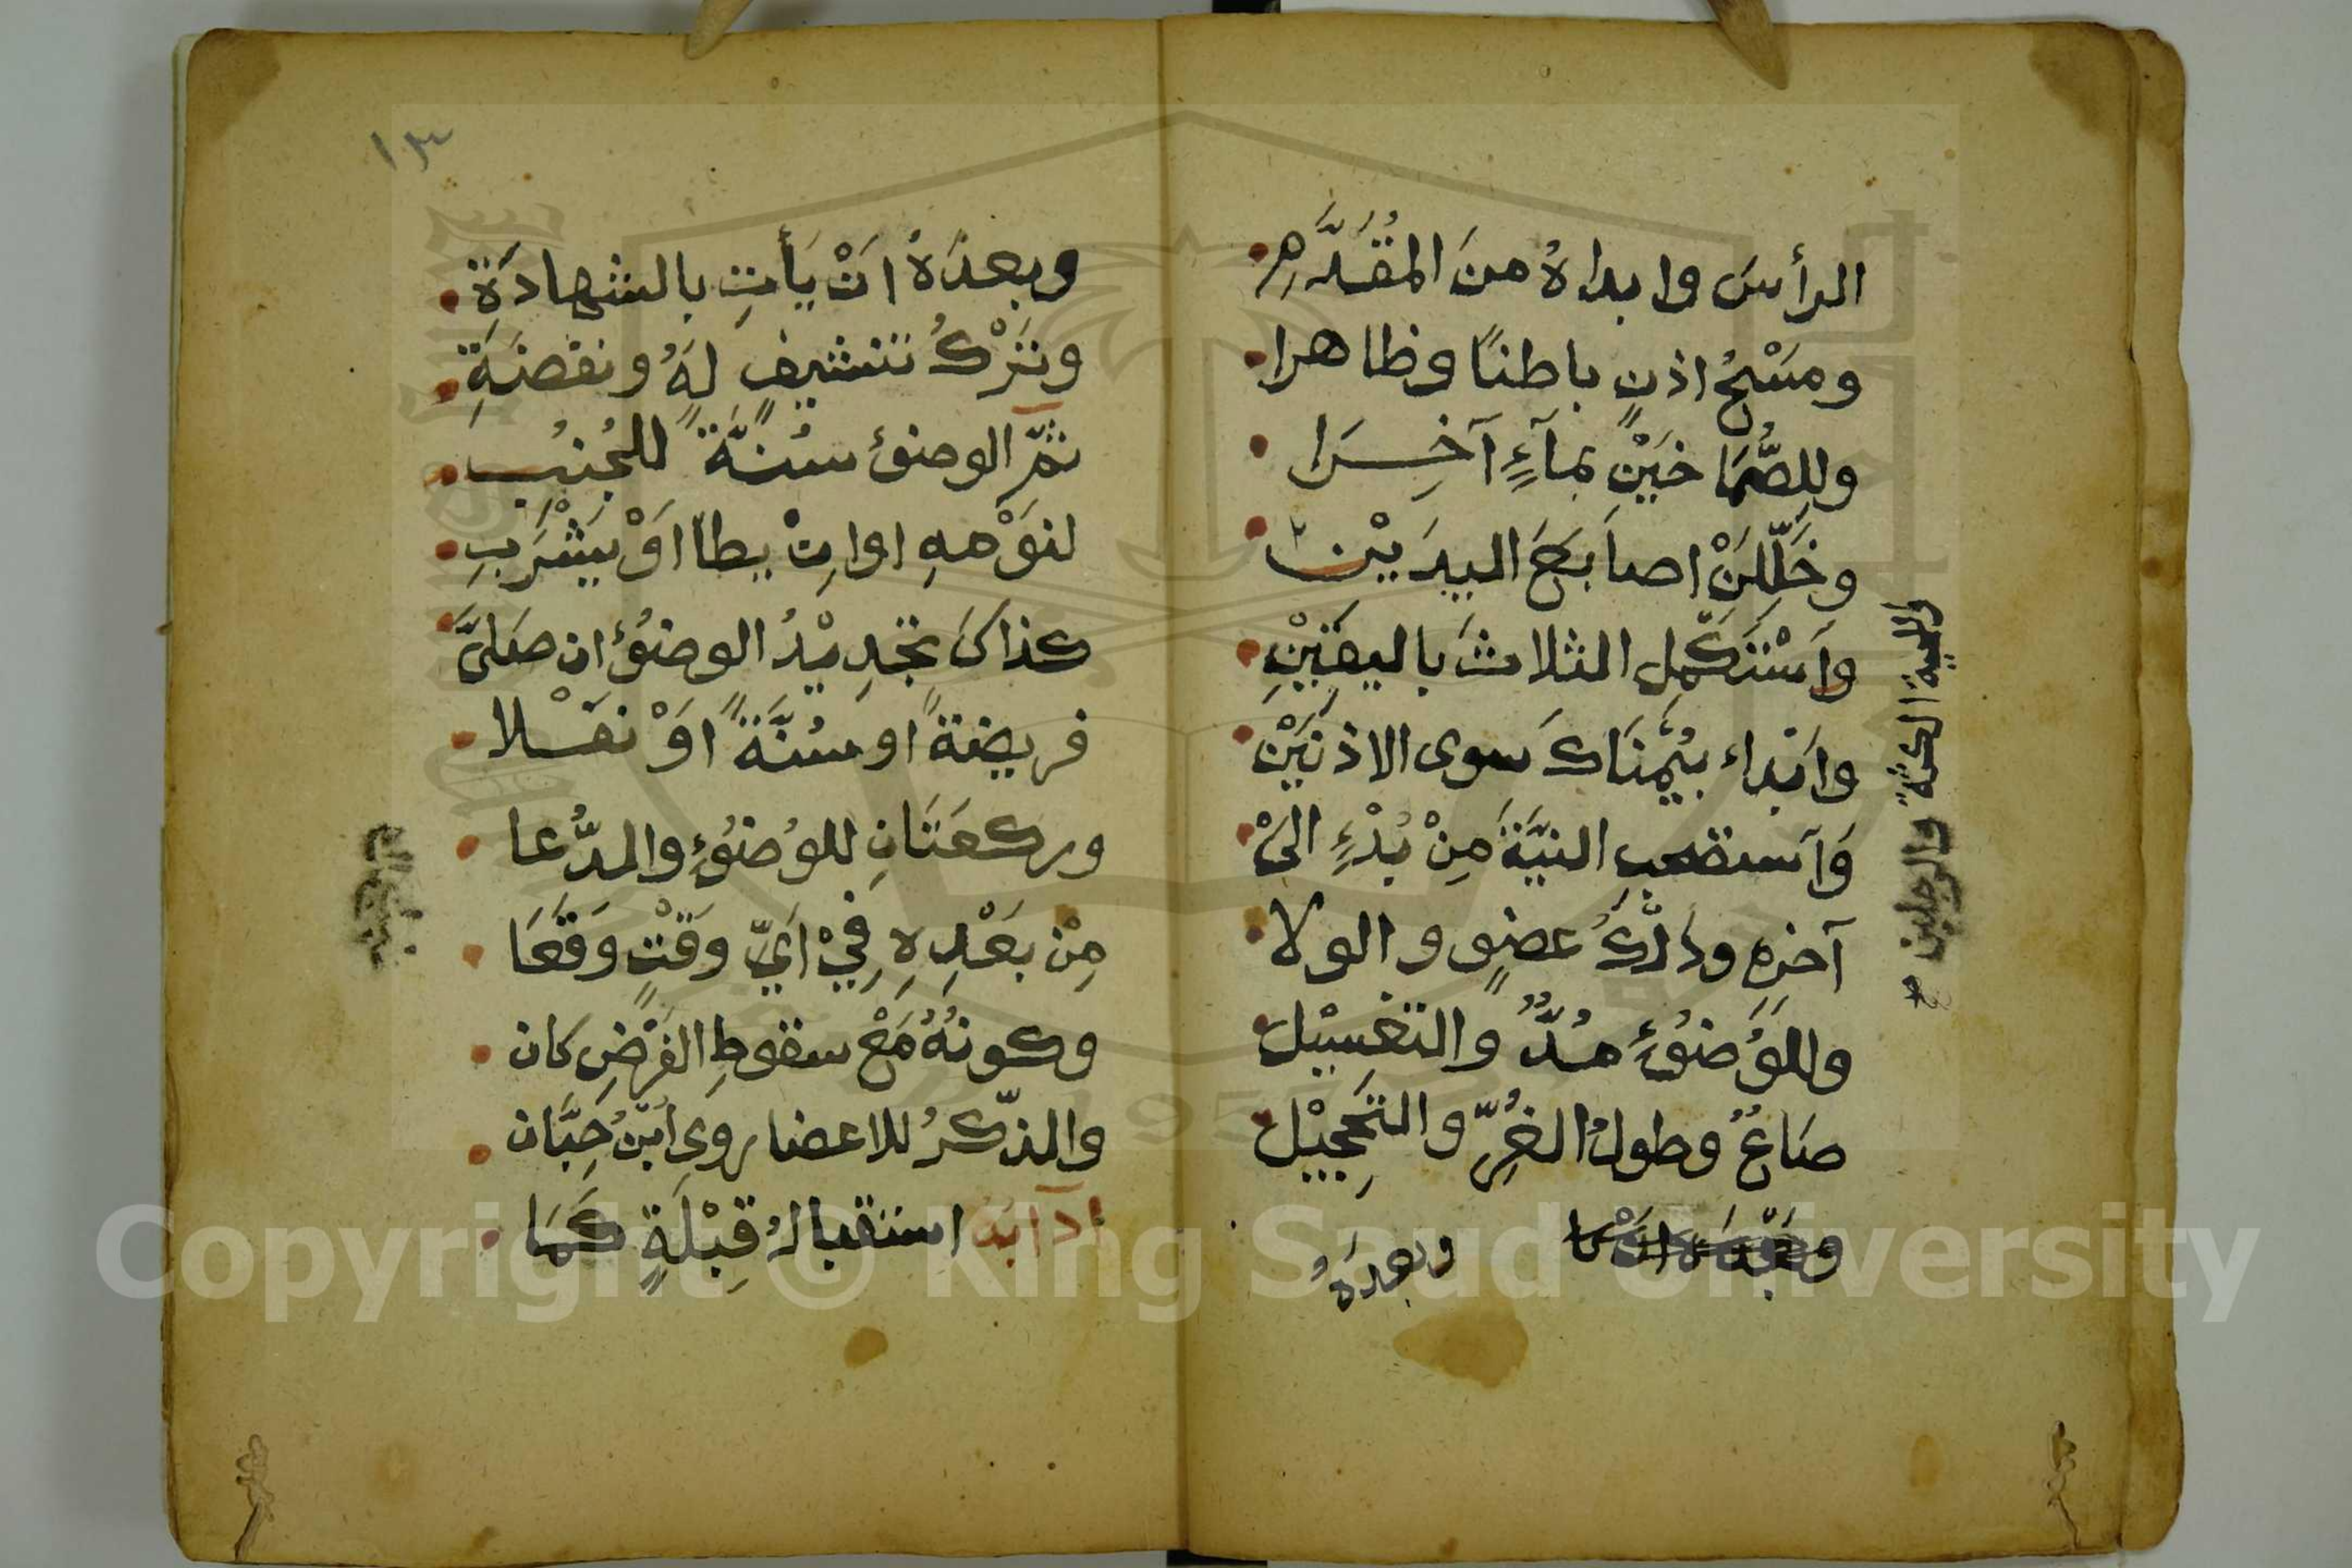 الرأسَ وابداهُ منَ المُقَدَّمِ
ومَسْحُ اذنٍ باطنًا وظاهرا
وللِصُّمَاخَيْنِ بمآءٍ آخِرَا
وخَلِّلَنْ اصابعَ اليدَيْن
واَسْتَكْمِلِ الثلاثَ باليقِيْنِ
وابْداء بيُمْنَاكَ سوى الاذنَيْنِ
وَاَستصحبِ النيَّةَ مِنْ بُدْءٍ الىْ
آخرِهِ ودَلْكُ عضوٍ والولا
وللوُضوُءِ مُدٌّ والتغسِيْل
صَاعٌ وطولُ الغُرِّ والتحَجِيْل
وبعدَهُ
واللحية الكثة والرجلين
١٣
وبعدَهُ انْ يَأتِ بالشهادَةِ
وتَرْكُ تنشيفٍ لَهُ ونفضَةِ
ثمّ الوضوُء سُنَّةً للجُنُبِ
لنَوْمهِ اوانْ يطأ اَوْ يَشْرَبِ
كذاكَ تجْدِيْدُ الوضوُء ان صَلىَّ
فريضةً اوسُنَّةً اوْ نفْلا
وركعَتَانِ للوُضوُءِ والدُّعا
مِنْ بَعْدِهِ فِيْ اَيِّ وَقْتٍ وَقَعَا
وكونُهُ مَعْ سقوطِ الفَرْضِ كان
والذّكرُ للاعضا روى ابْنُ حِبَّان
آدابه استقبالُ قِبْلَةٍ كَمَا
Copyright © King Saud University